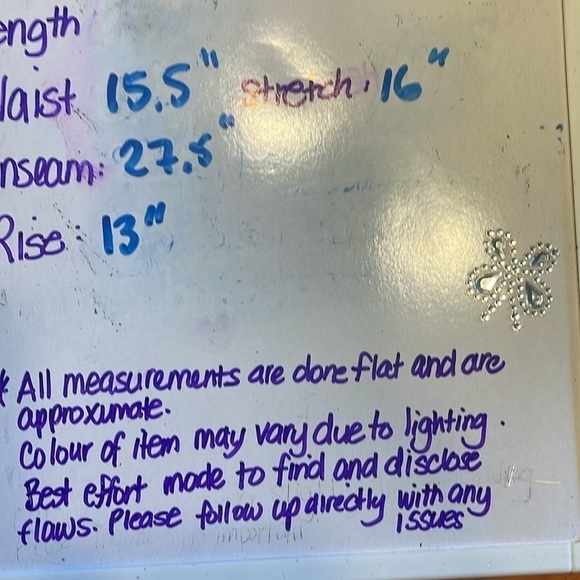 ength
aist 15.5" stretch: 16"
nseam: 27.5"
Rise: 13"
* All measurements are done flat and are
approxumate.
Colour of item may vary due to lighting.
Best effort made to find and disclose
flaws. Please follow up directly with any
issues